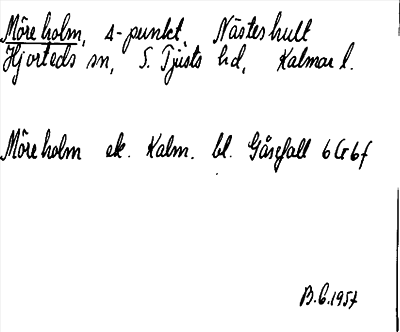 Möreholm, 4-punkt, Nästeshult
Hjorteds sn, S. Tjusts hd, Kalmar l.
Möreholm ek. Kalm. bl. Gåsefall 6 G 6 f
B.G. 1957